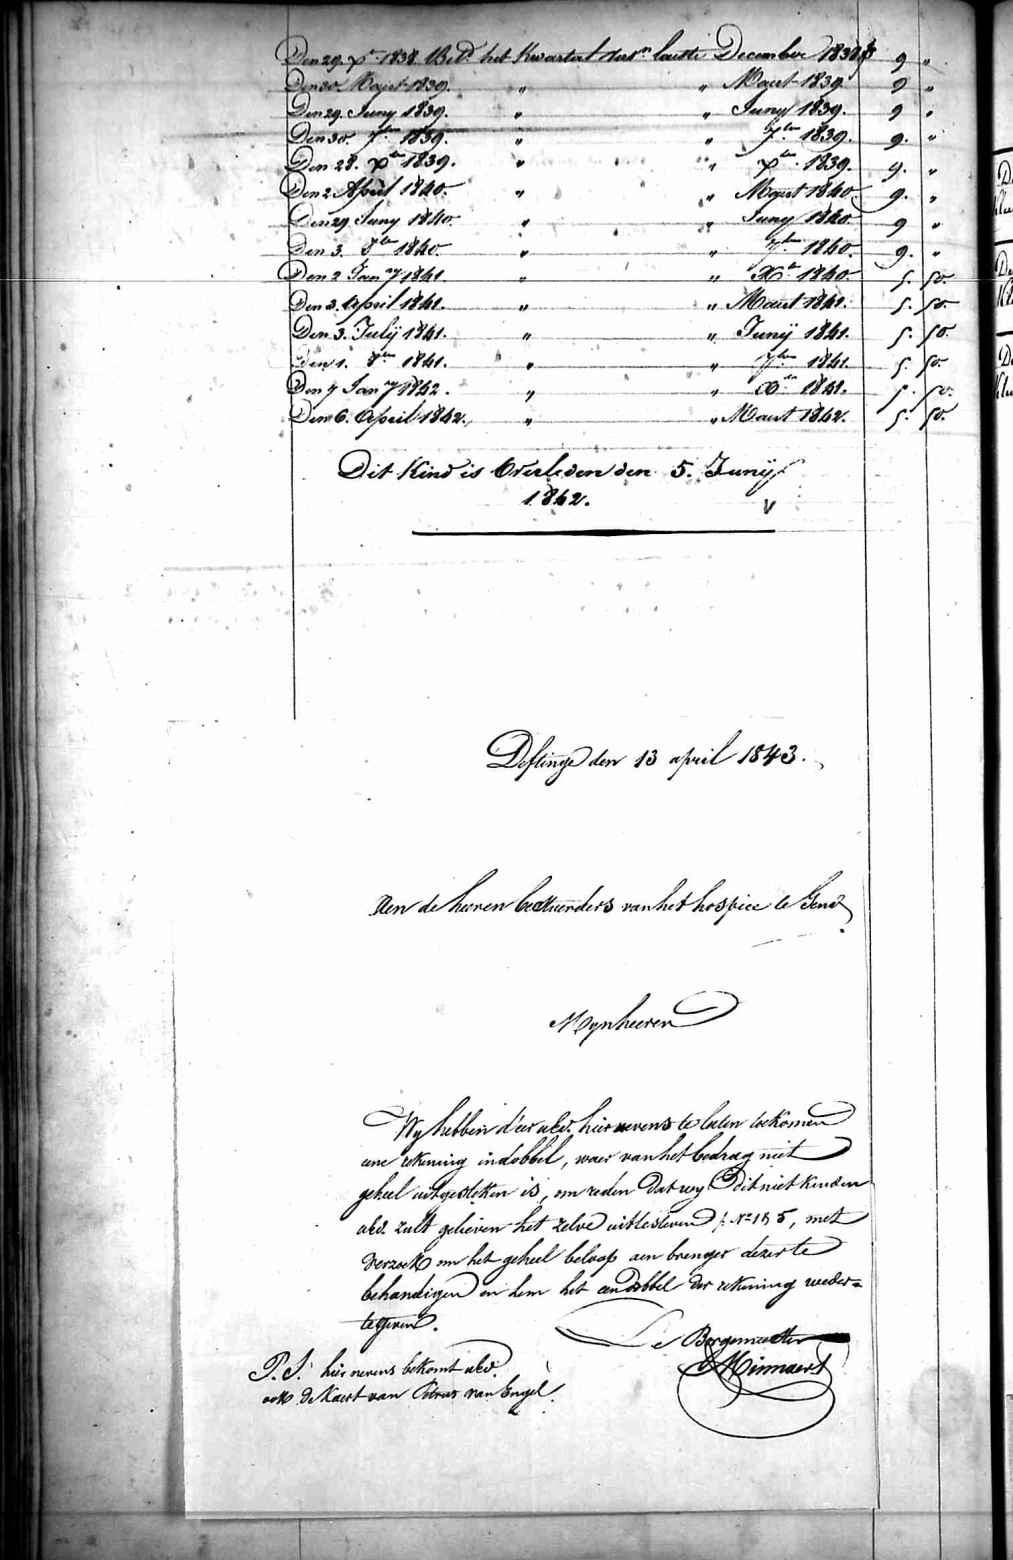 Den 29. Xr 1838. Betd. het Kwartaal laatste December 1838 f 9 "
Den 30 Maart 1839. " " Maart 1839. 9 "
Den 29. Juny 1839. " " Juny 1839. 9 "
Den 30. 7ber 1839. " " 7ber 1839. 9. "
Den 28. Xber 1839. " " Xber 1839. 9. "
Den 2 April 1840. " " Maart 1840. 9. "
Den 29 Juny 1840. " " Juny 1840 9 "
Den 3. 8ber 1840. " " 7ber 1840. 9. "
Den 2 Jany 1841. " " Xbr 1840 5. 50.
Den 3. April 1841. " " Maart 1841. 5. 50.
Den 3. Julÿ 1841. " " Junÿ 1841. 5. 50
Den 1. 8ber 1841. " " 7ber 1841. 5. 50.
Den 4 Jany 1842. " " Xber 1841. 5. 50.
Den 6. April 1842. " " Maart 1842. 5. 50.
Dit Kind is Overleden den 5. Junÿ
1842.
Deftinge den 13 april 1843.
Aen de heeren bestuerders van het hospice te Gend
Mynheeren
Wy hebben d'eer ued. hier nevens te laten toekomen
eene rekening in dobbel, waer van het bedrag niet
geheel uitgetrokken is, om reden dat wy dit niet kenden
ued. zult gelieven het zelve uittestven No 185, met
verzoek om het geheel beloop aen brenger dezer te
behandigen en hem het een dobbel der rekening weder=
tegeven.
De Borgemeester
Minnaert
P.S. hier nevens bekomt ued.
ook de kaert van Petrus van Engel.